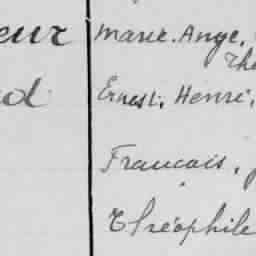 eur Marie. Ange,
The
d Ernest, Henri,
Francois,
Théophile